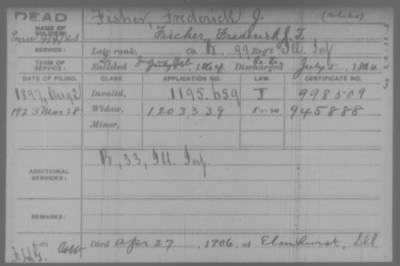 DEAD Fischer, Frederick J.
NAME OF SOLDIER: Fischer, Frederick J. F.
SERVICE: Late rank, Co. B, 99 Reg't Ill. Inf
TERM OF SERVICE: Enlisted 1864 Discharged July 1864
DATE OF FILING. CLASS. APPLICATION NO. LAW. CERTIFICATE NO.
1897, Aug 2 Invalid, 1195.659 J 998509
1923 Mar 28 Widow, 1203339 945888
Minor,
ADDITIONAL SERVICES: B, 33, Ill. Inf
REMARKS:
Died Apr 27, 1906, at Elmhurst, Ill.